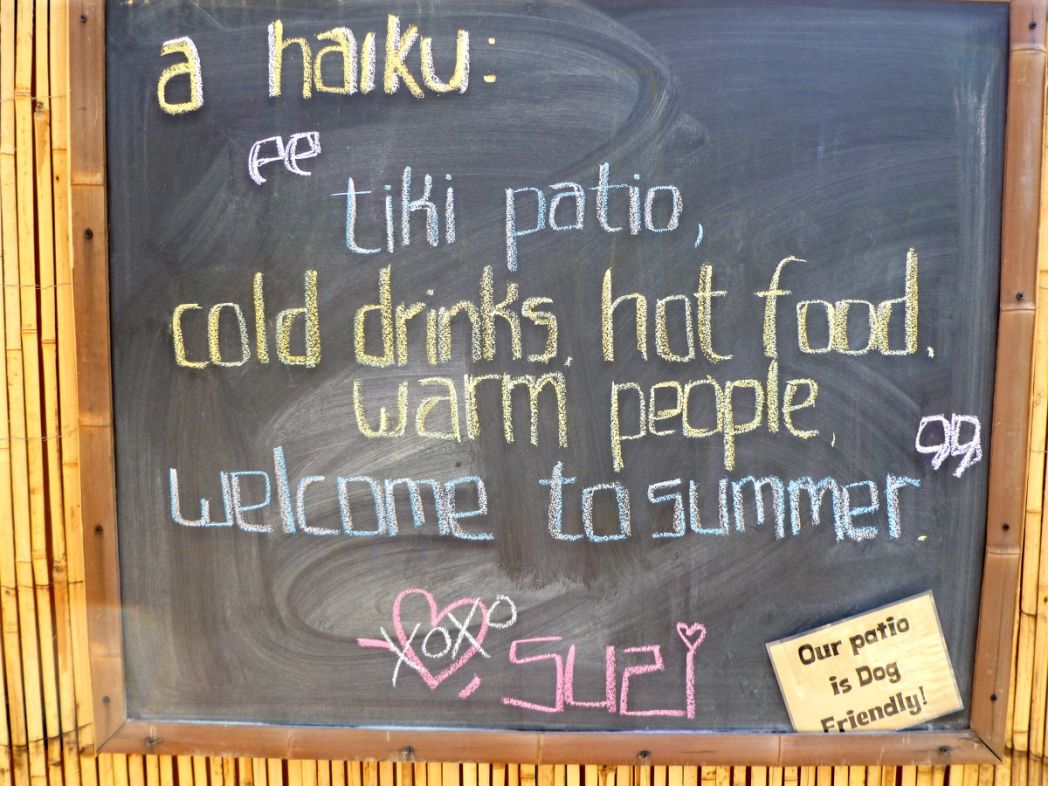 a haiku:
"tiki patio,
cold drinks, hot food.
warm people,
welcome to summer."
xoxo, suzi
Our patio
is Dog
Friendly!